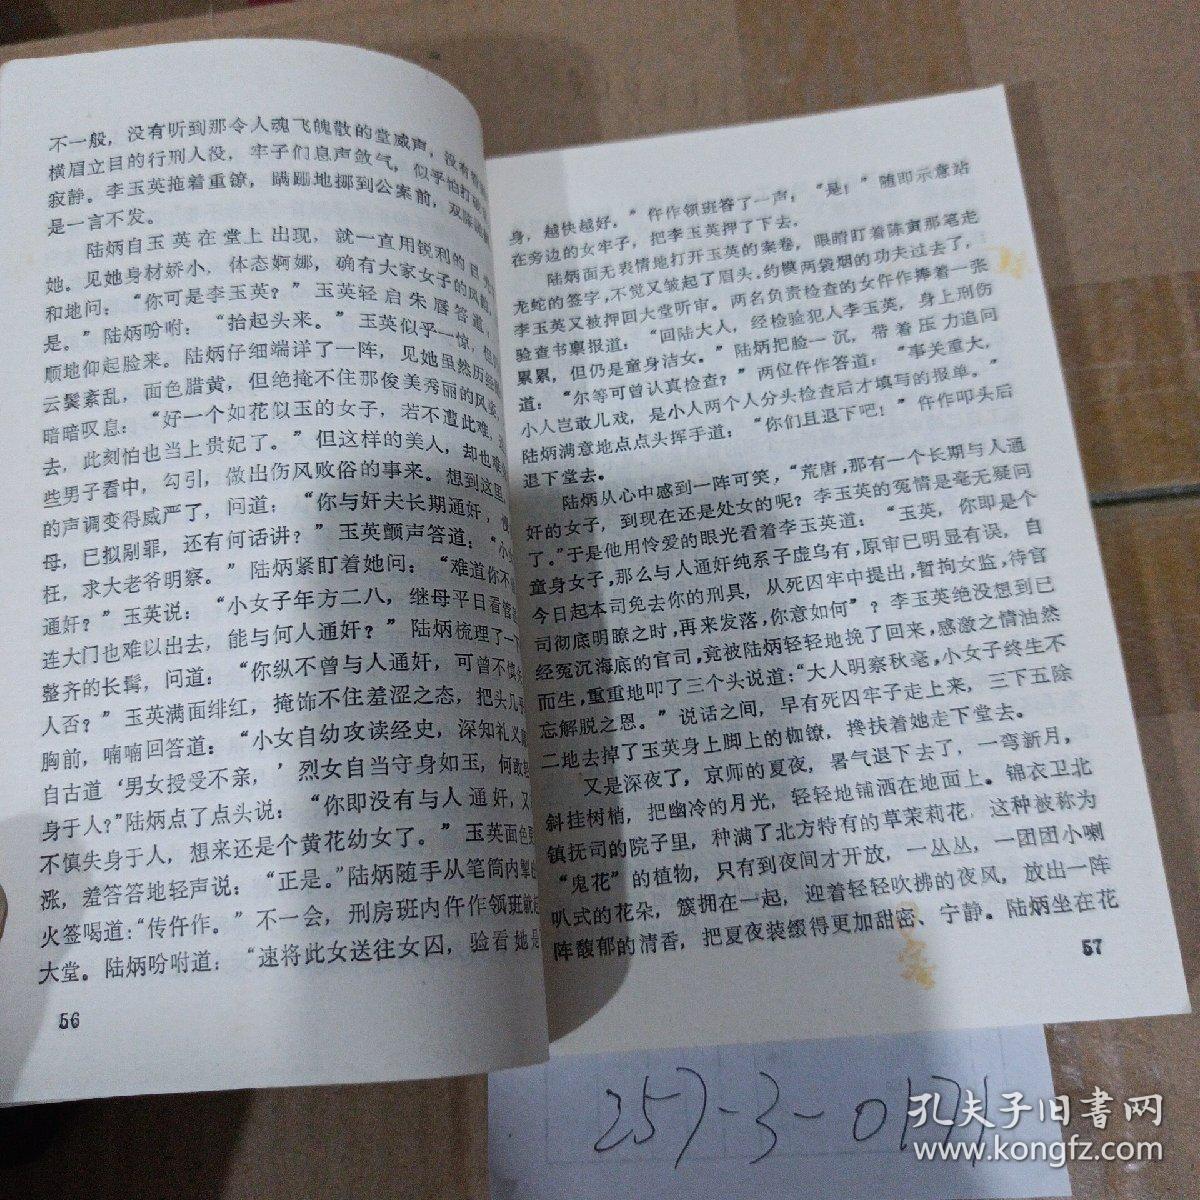 不一般，没有听到那令人魂飞魄散的堂威声，没有
横眉立目的行刑人役，牢子们息声敛气，似乎怕打破
寂静。李玉英拖着重镣，蹒跚地挪到公案前，双膝
是一言不发。
陆炳自玉英在堂上出现，就一直用锐利的目光
她。见她身材娇小，体态婀娜，确有大家女子的风
和地问：“你可是李玉英？”玉英轻启朱唇答道
是。”陆炳吩咐：“抬起头来。”玉英似乎一惊，但
顺地仰起脸来。陆炳仔细端详了一阵，见她虽然历经
云鬓紊乱，面色腊黄，但绝掩不住那俊美秀丽的风
暗暗叹息：“好一个如花似玉的女子，若不遭此难，
去，此刻怕也当上贵妃了。”但这样的美人，却也难
些男子看中，勾引，做出伤风败俗的事来。想到这里，
的声调变得威严了，问道：“你与奸夫长期通奸，
母，已拟剐罪，还有何话讲？”玉英颤声答道：“小
枉，求大老爷明察。”陆炳紧盯着她问：“难道你不
通奸？”玉英说：“小女子年方二八，继母平日看管
连大门也难以出去，能与何人通奸？”陆炳梳理了一
整齐的长髯，问道：“你纵不曾与人通奸，可曾不慎失
人否？”玉英满面绯红，掩饰不住羞涩之态，把头几乎
胸前，喃喃回答道：“小女自幼攻读经史，深知礼义
自古道‘男女授受不亲，’烈女自当守身如玉，何敢
身于人？”陆炳点了点头说：“你即没有与人通奸，又
不慎失身于人，想来还是个黄花幼女了。”玉英面色
涨，羞答答地轻声说：“正是。”陆炳随手从笔筒内掣
火签喝道：“传仵作。”不一会，刑房班内仵作领班就
大堂。陆炳吩咐道：“速将此女送往女囚，验看她是
56
身，越快越好。”仵作领班答了一声，“是！”随即示意站
在旁边的女牢子，把李玉英押了下去。
陆炳面无表情地打开玉英的案卷，眼睛盯着陈寅那笔走
龙蛇的签字，不觉又皱起了眉头。约模两袋烟的功夫过去了，
李玉英又被押回大堂听审。两名负责检查的女仵作捧着一张
验查书禀报道：“回陆大人，经检验犯人李玉英，身上刑伤
累累，但仍是童身洁女。”陆炳把脸一沉，带着压力追问
道：“尔等可曾认真检查？”两位仵作答道：“事关重大，
小人岂敢儿戏，是小人两个人分头检查后才填写的报单。”
陆炳满意地点点头挥手道：“你们且退下吧！”仵作叩头后
退下堂去。
陆炳从心中感到一阵可笑，“荒唐，那有一个长期与人通
奸的女子，到现在还是处女的呢？李玉英的冤情是毫无疑问
了。”于是他用怜爱的眼光看着李玉英道：“玉英，你即是个
童身女子，那么与人通奸纯系子虚乌有，原审已明显有误，自
今日起本司免去你的刑具，从死囚牢中提出，暂拘女监，待官
司彻底明瞭之时，再来发落，你意如何”？李玉英绝没想到已
经冤沉海底的官司，竟被陆炳轻轻地挽了回来，感激之情油然
而生，重重地叩了三个头说道：“大人明察秋毫，小女子终生不
忘解脱之恩。”说话之间，早有死囚牢子走上来，三下五除
二地去掉了玉英身上脚上的枷镣，搀扶着她走下堂去。
又是深夜了，京师的夏夜，暑气退下去了，一弯新月，
斜挂树梢，把幽冷的月光，轻轻地铺洒在地面上。锦衣卫北
镇抚司的院子里，种满了北方特有的草茉莉花，这种被称为
“鬼花”的植物，只有到夜间才开放，一丛丛，一团团小喇
叭式的花朵，簇拥在一起，迎着轻轻吹拂的夜风，放出一阵
阵馥郁的清香，把夏夜装缀得更加甜密、宁静。陆炳坐在花
57
257-3-01
孔夫子旧书网
www.kongfz.com